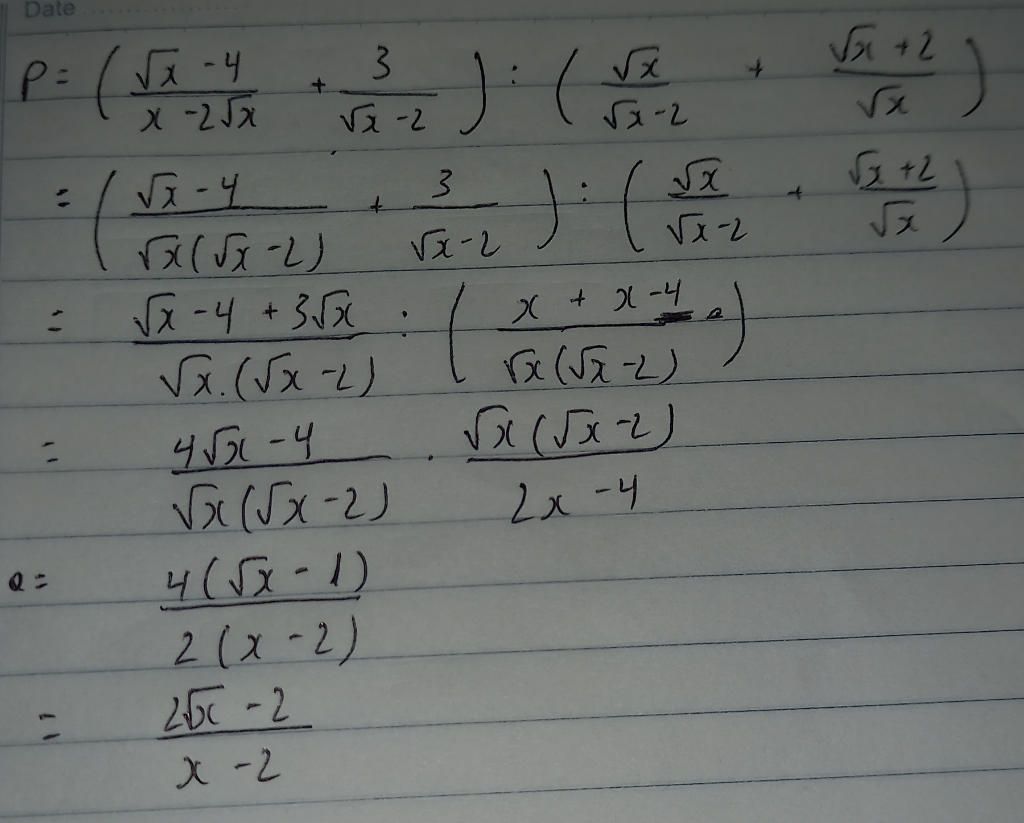 Date
P = ( (√x - 4)/(x - 2√x) + 3/(√x - 2) ) : ( √x/(√x - 2) + (√x + 2)/√x )
= ( (√x - 4)/(√x(√x - 2)) + 3/(√x - 2) ) : ( √x/(√x - 2) + (√x + 2)/√x )
= (√x - 4 + 3√x)/(√x.(√x - 2)) : ( (x + x - 4)/(√x(√x - 2)) )
= (4√x - 4)/(√x(√x - 2)) . (√x(√x - 2))/(2x - 4)
= (4(√x - 1))/(2(x - 2))
= (2√x - 2)/(x - 2)